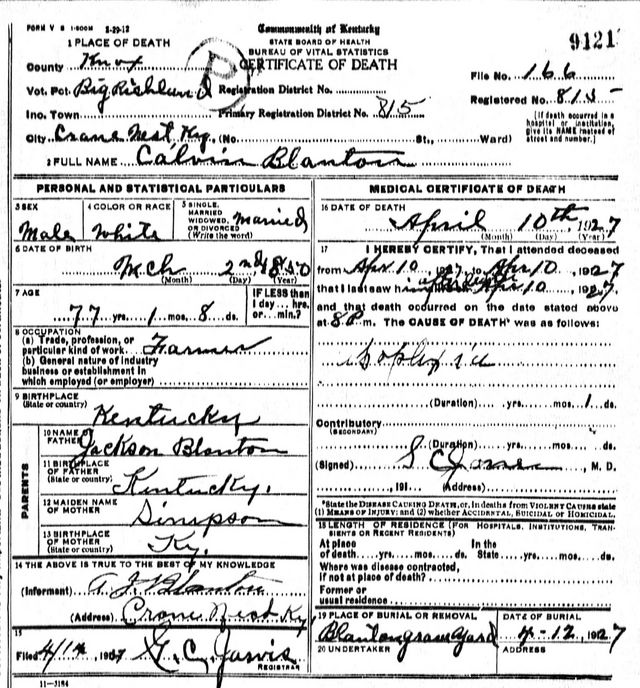 FORM V S 1-500M 2-29-12
Commonwealth of Kentucky
STATE BOARD OF HEALTH
BUREAU OF VITAL STATISTICS
CERTIFICATE OF DEATH
9121
1 PLACE OF DEATH
County Knox
Vot. Pct. Big Richland Registration District No.
File No. 166
Inc. Town Primary Registration District No. 815
Registered No. 815
City Crane Nest, Ky. (No. St., Ward)
[If death occurred in a hospital or institution, give its NAME instead of street and number.]
2 FULL NAME Calvin Blanton
PERSONAL AND STATISTICAL PARTICULARS
3 SEX Male
4 COLOR OR RACE White
5 SINGLE, MARRIED, WIDOWED, OR DIVORCED (Write the word) Married
6 DATE OF BIRTH
Mch 2nd 1850
(Month) (Day) (Year)
7 AGE
77 yrs. 1 mos. 8 ds.
IF LESS than 1 day... hrs. or... min.?
8 OCCUPATION
(a) Trade, profession, or particular kind of work Farmer
(b) General nature of industry
business or establishment in
which employed (or employer)
9 BIRTHPLACE
(State or country) Kentucky
PARENTS
10 NAME OF FATHER Jackson Blanton
11 BIRTHPLACE OF FATHER (State or country) Kentucky.
12 MAIDEN NAME OF MOTHER Simpson
13 BIRTHPLACE OF MOTHER (State or country) Ky.
14 THE ABOVE IS TRUE TO THE BEST OF MY KNOWLEDGE
(Informant) Blanton
(Address) Crane Nest Ky,
15
Filed 4/14 1927 G. C. Jarvis
REGISTRAR
11-3184
MEDICAL CERTIFICATE OF DEATH
16 DATE OF DEATH
April 10th, 1927
(Month) (Day) (Year)
17 I HEREBY CERTIFY, That I attended deceased
from Apr 10, 1927 to Apr 10, 1927
that I last saw h Apr 10, 1927.
and that death occurred on the date stated above
at 8 P. m. The CAUSE OF DEATH* was as follows:
(Duration) yrs. mos. 1 ds.
Contributory
(SECONDARY)
(Duration) yrs. mos. ds.
(Signed) S C Jones, M. D.
, 191 (Address)
*State the DISEASE CAUSING DEATH, or, in deaths from VIOLENT CAUSES state
(1) MEANS OF INJURY; and (2) whether ACCIDENTAL, SUICIDAL or HOMICIDAL.
18 LENGTH OF RESIDENCE (FOR HOSPITALS, INSTITUTIONS, TRANSIENTS OR RECENT RESIDENTS)
At place of death yrs. mos. ds. In the State yrs. mos. ds.
Where was disease contracted,
if not at place of death?
Former or
usual residence
19 PLACE OF BURIAL OR REMOVAL
Blanton graveyard
DATE OF BURIAL
4-12, 1927
20 UNDERTAKER
ADDRESS